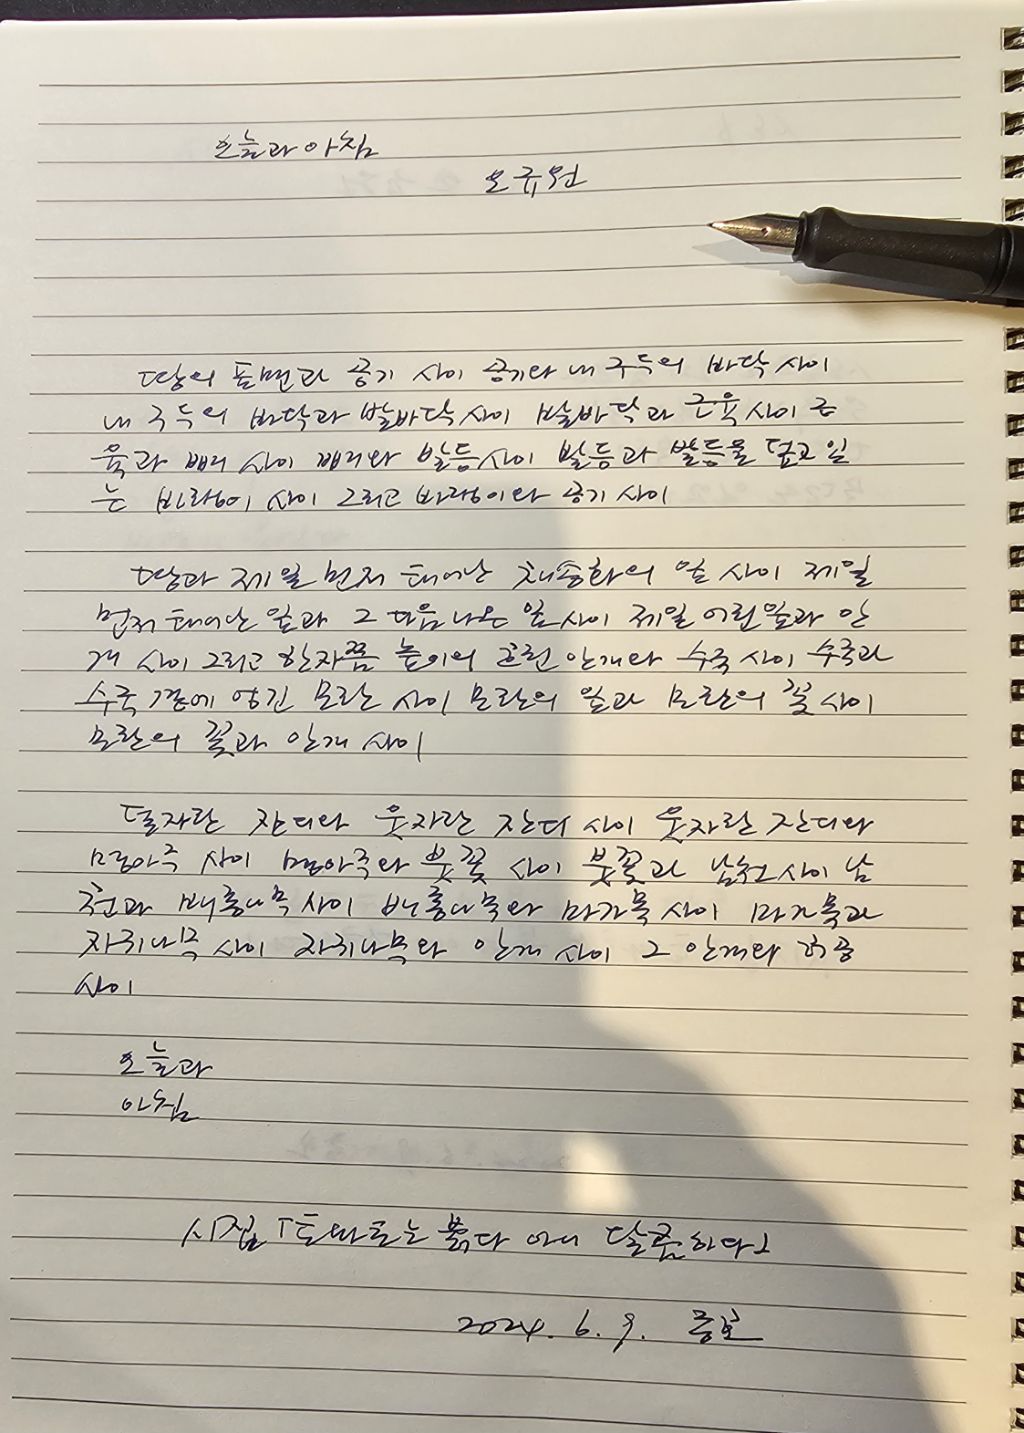 오늘과 아침
오규원
땅의 표면과 공기 사이 공기와 내 구두의 바닥 사이
내 구두의 바닥과 발바닥 사이 발바닥과 근육 사이 근
육과 뼈 사이 뼈와 발등 사이 발등과 발등을 덮고 있
는 바랭이 사이 그리고 바랭이와 공기 사이
땅과 제일 먼저 태어난 채송화의 잎 사이 제일
먼저 태어난 잎과 그 다음 나온 잎 사이 제일 어린 잎과 안
개 사이 그리고 한자쯤 높이의 흐린 안개와 수국 사이 수국과
수국 곁에 엉긴 모란 사이 모란의 잎과 모란의 꽃 사이
모란의 꽃과 안개 사이
덜자란 잔디와 웃자란 잔디 사이 웃자란 잔디와
명아주 사이 명아주와 붓꽃 사이 붓꽃과 남천 사이 남
천과 배롱나무 사이 배롱나무와 마가목 사이 마가목과
자귀나무 사이 자귀나무와 안개 사이 그 안개와 허공
사이
오늘과
아침
시집 「토마토는 붉다 아니 달콤하다」
2024. 6. 9.